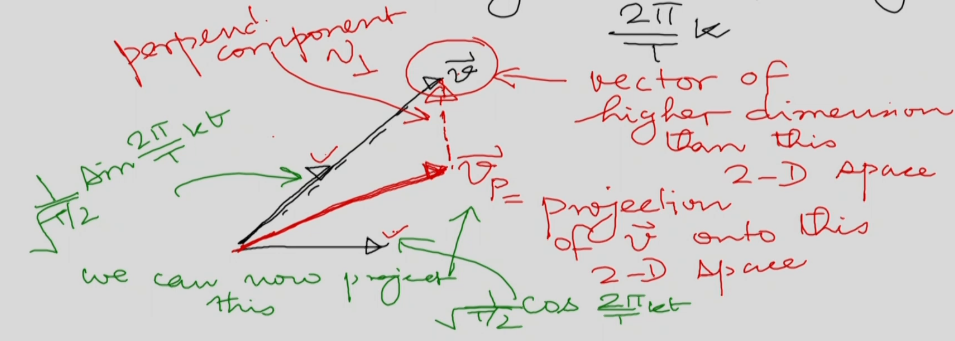 2π/T k
perpend.
component
v⊥
v⃗
vector of
higher dimension
than this
2-D space
1/√T/2 sin 2π/T kt
v⃗p = projection
of v⃗ onto this
2-D space
we can now project
this
1/√T/2 cos 2π/T kt